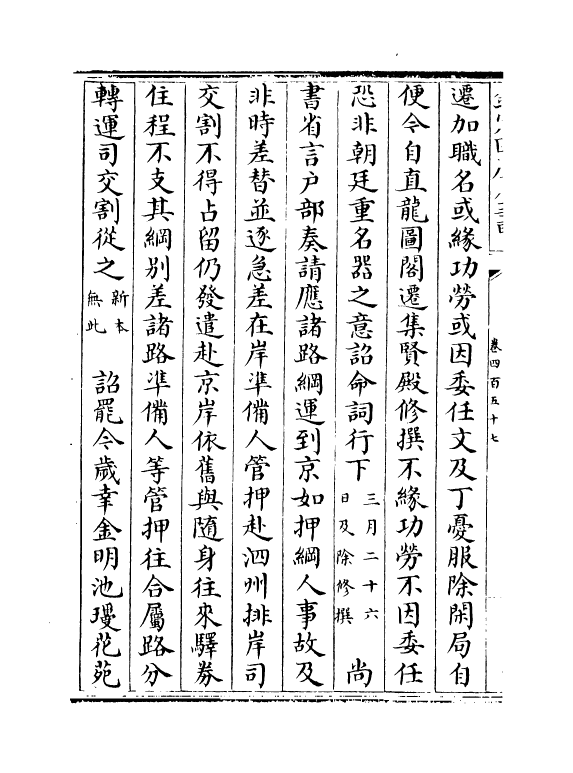 卷四百五十七
遷加職名或緣功勞或因委任文及丁憂服除閑局自
便令自直龍圖閣遷集賢殿修撰不緣功勞不因委任
恐非朝廷重名器之意詔命詞行下三月二十六日及除修撰 尚
書省言户部奏請應諸路綱運到京如押綱人事故及
非時差替並逐急差在岸凖備人管押赴泗州排岸司
交割不得占留仍發遣赴京岸依舊與隨身往來驛券
住程不支其綱别差諸路凖備人等管押往合屬路分
轉運司交割從之新本無此 詔罷今歲幸金明池瓊花苑